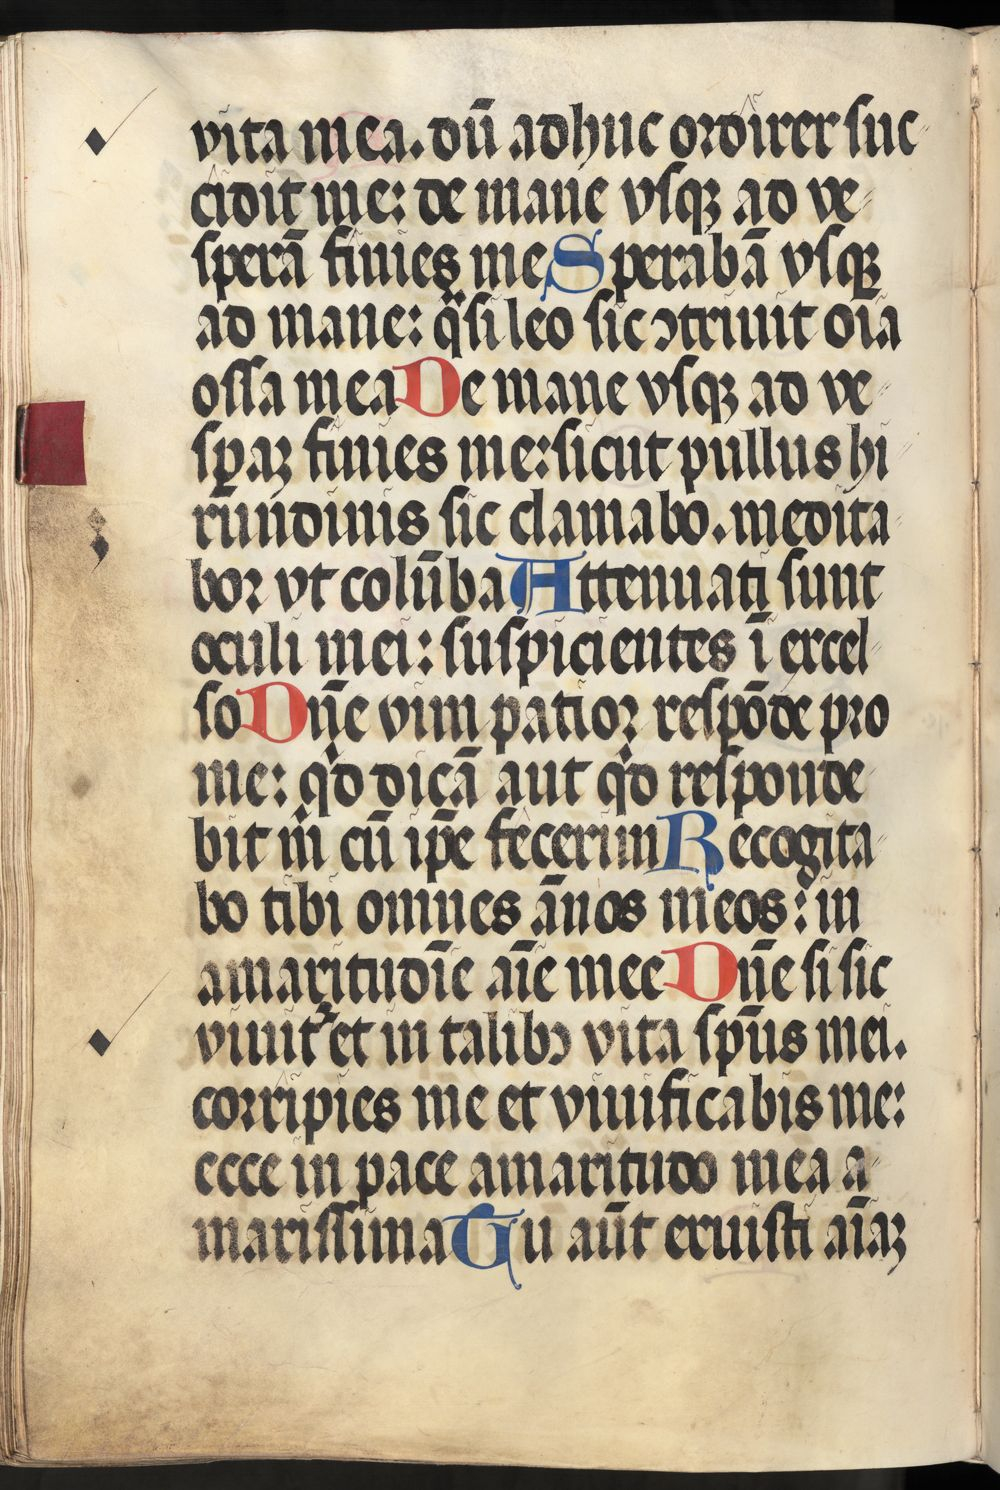 vita mea. dū adhuc ordirer suc
cidit me: de mane vsqꝫ ad ve
sperā finies me Sperabā vsqꝫ
ad mane: q̄si leo sic ↄtriuit oīa
ossa mea De mane vsqꝫ ad ve
sꝑaꝫ finies me: sicut pullus hi
rundinis sic clamabo. medita
bor vt colūba Attenuati sunt
oculi mei: suspicientes ī excel
so Dn̄e vim patior respōde pro
me: qͥd dicā aut qͥd responde
bit m̄ cū ip̄e fecerim Recogita
bo tibi omnes ānos meos: in
amaritudīe aīe mee Dn̄e si sic
viuitᷣ et in talibꝰ vita sp̄us mei.
corripies me et viuificabis me:
ecce in pace amaritudo mea a
marissima Tu aūt eruisti aīaꝫ